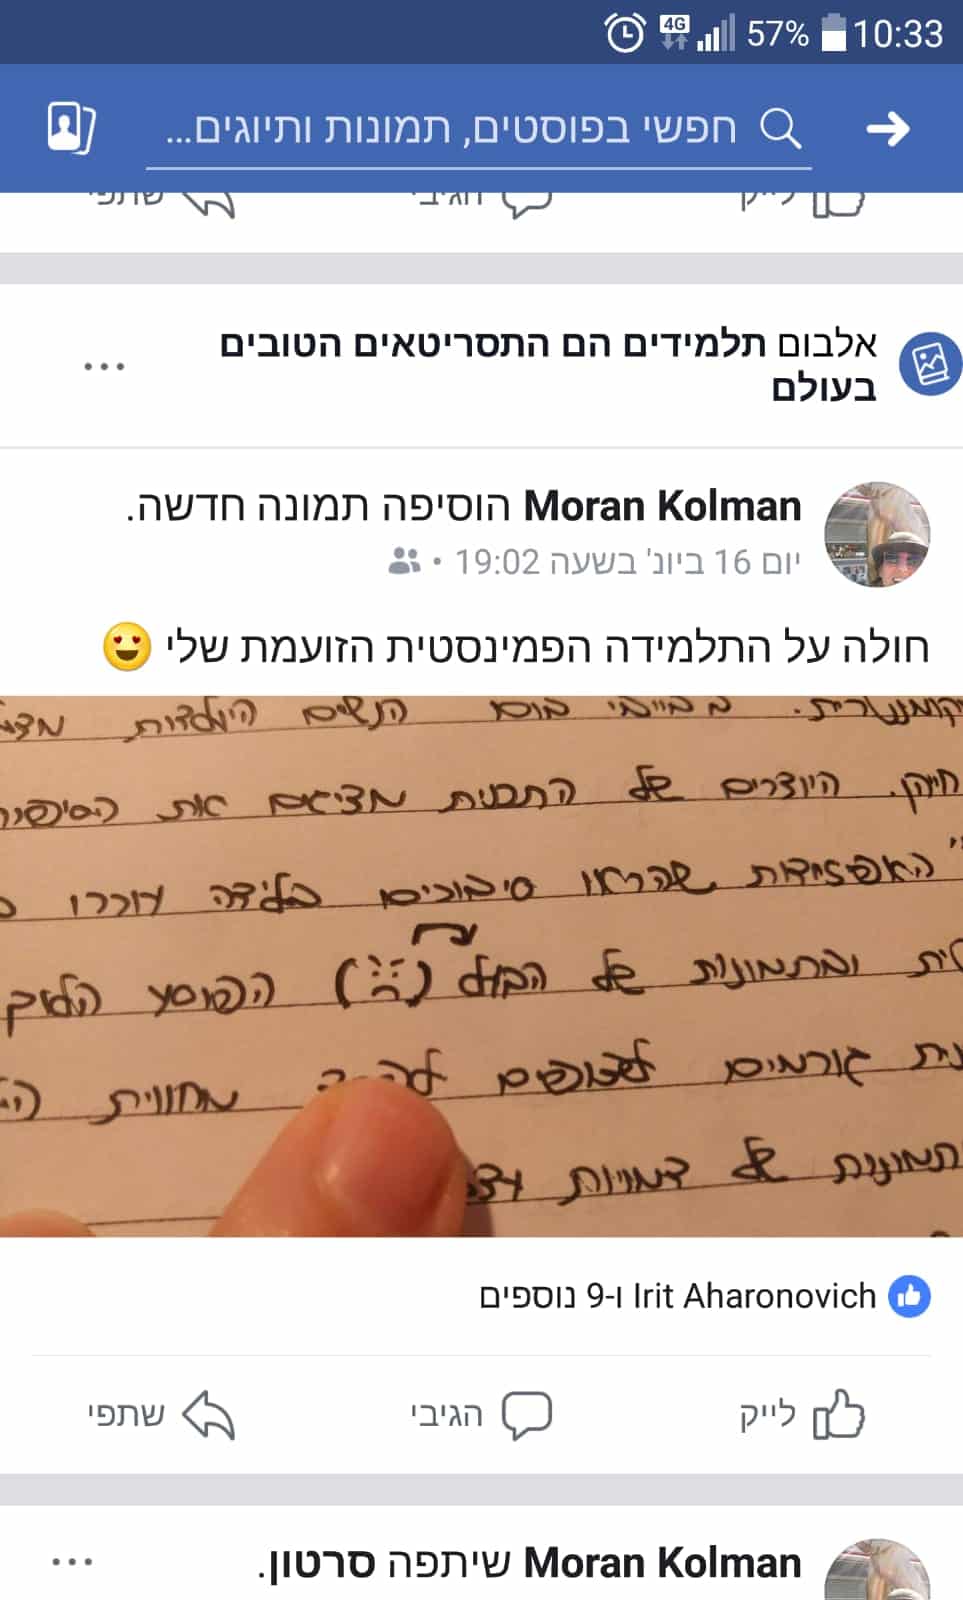 57% 4G 10:33
חפשי בפוסטים, תמונות ותיוגים...
לייק הגיבי שתפי
אלבום תלמידים הם התסריטאים הטובים
בעולם
Moran Kolman הוסיפה תמונה חדשה.
יום 16 ביונ' בשעה 19:02
חולה על התלמידה הפמינסטית הזועמת שלי
בבייבי בום הנשים היולדות
היוצרים של התכנית מציגים את
האפיזודות שהראו סיבוכים בלידה עוררו
ובתמונות של הבעל ): הפוסע הלוך
גורמים לצופים מחווית
תמונות של דמויות
Irit Aharonovich ו-9 נוספים
לייק הגיבי שתפי
Moran Kolman שיתפה סרטון.